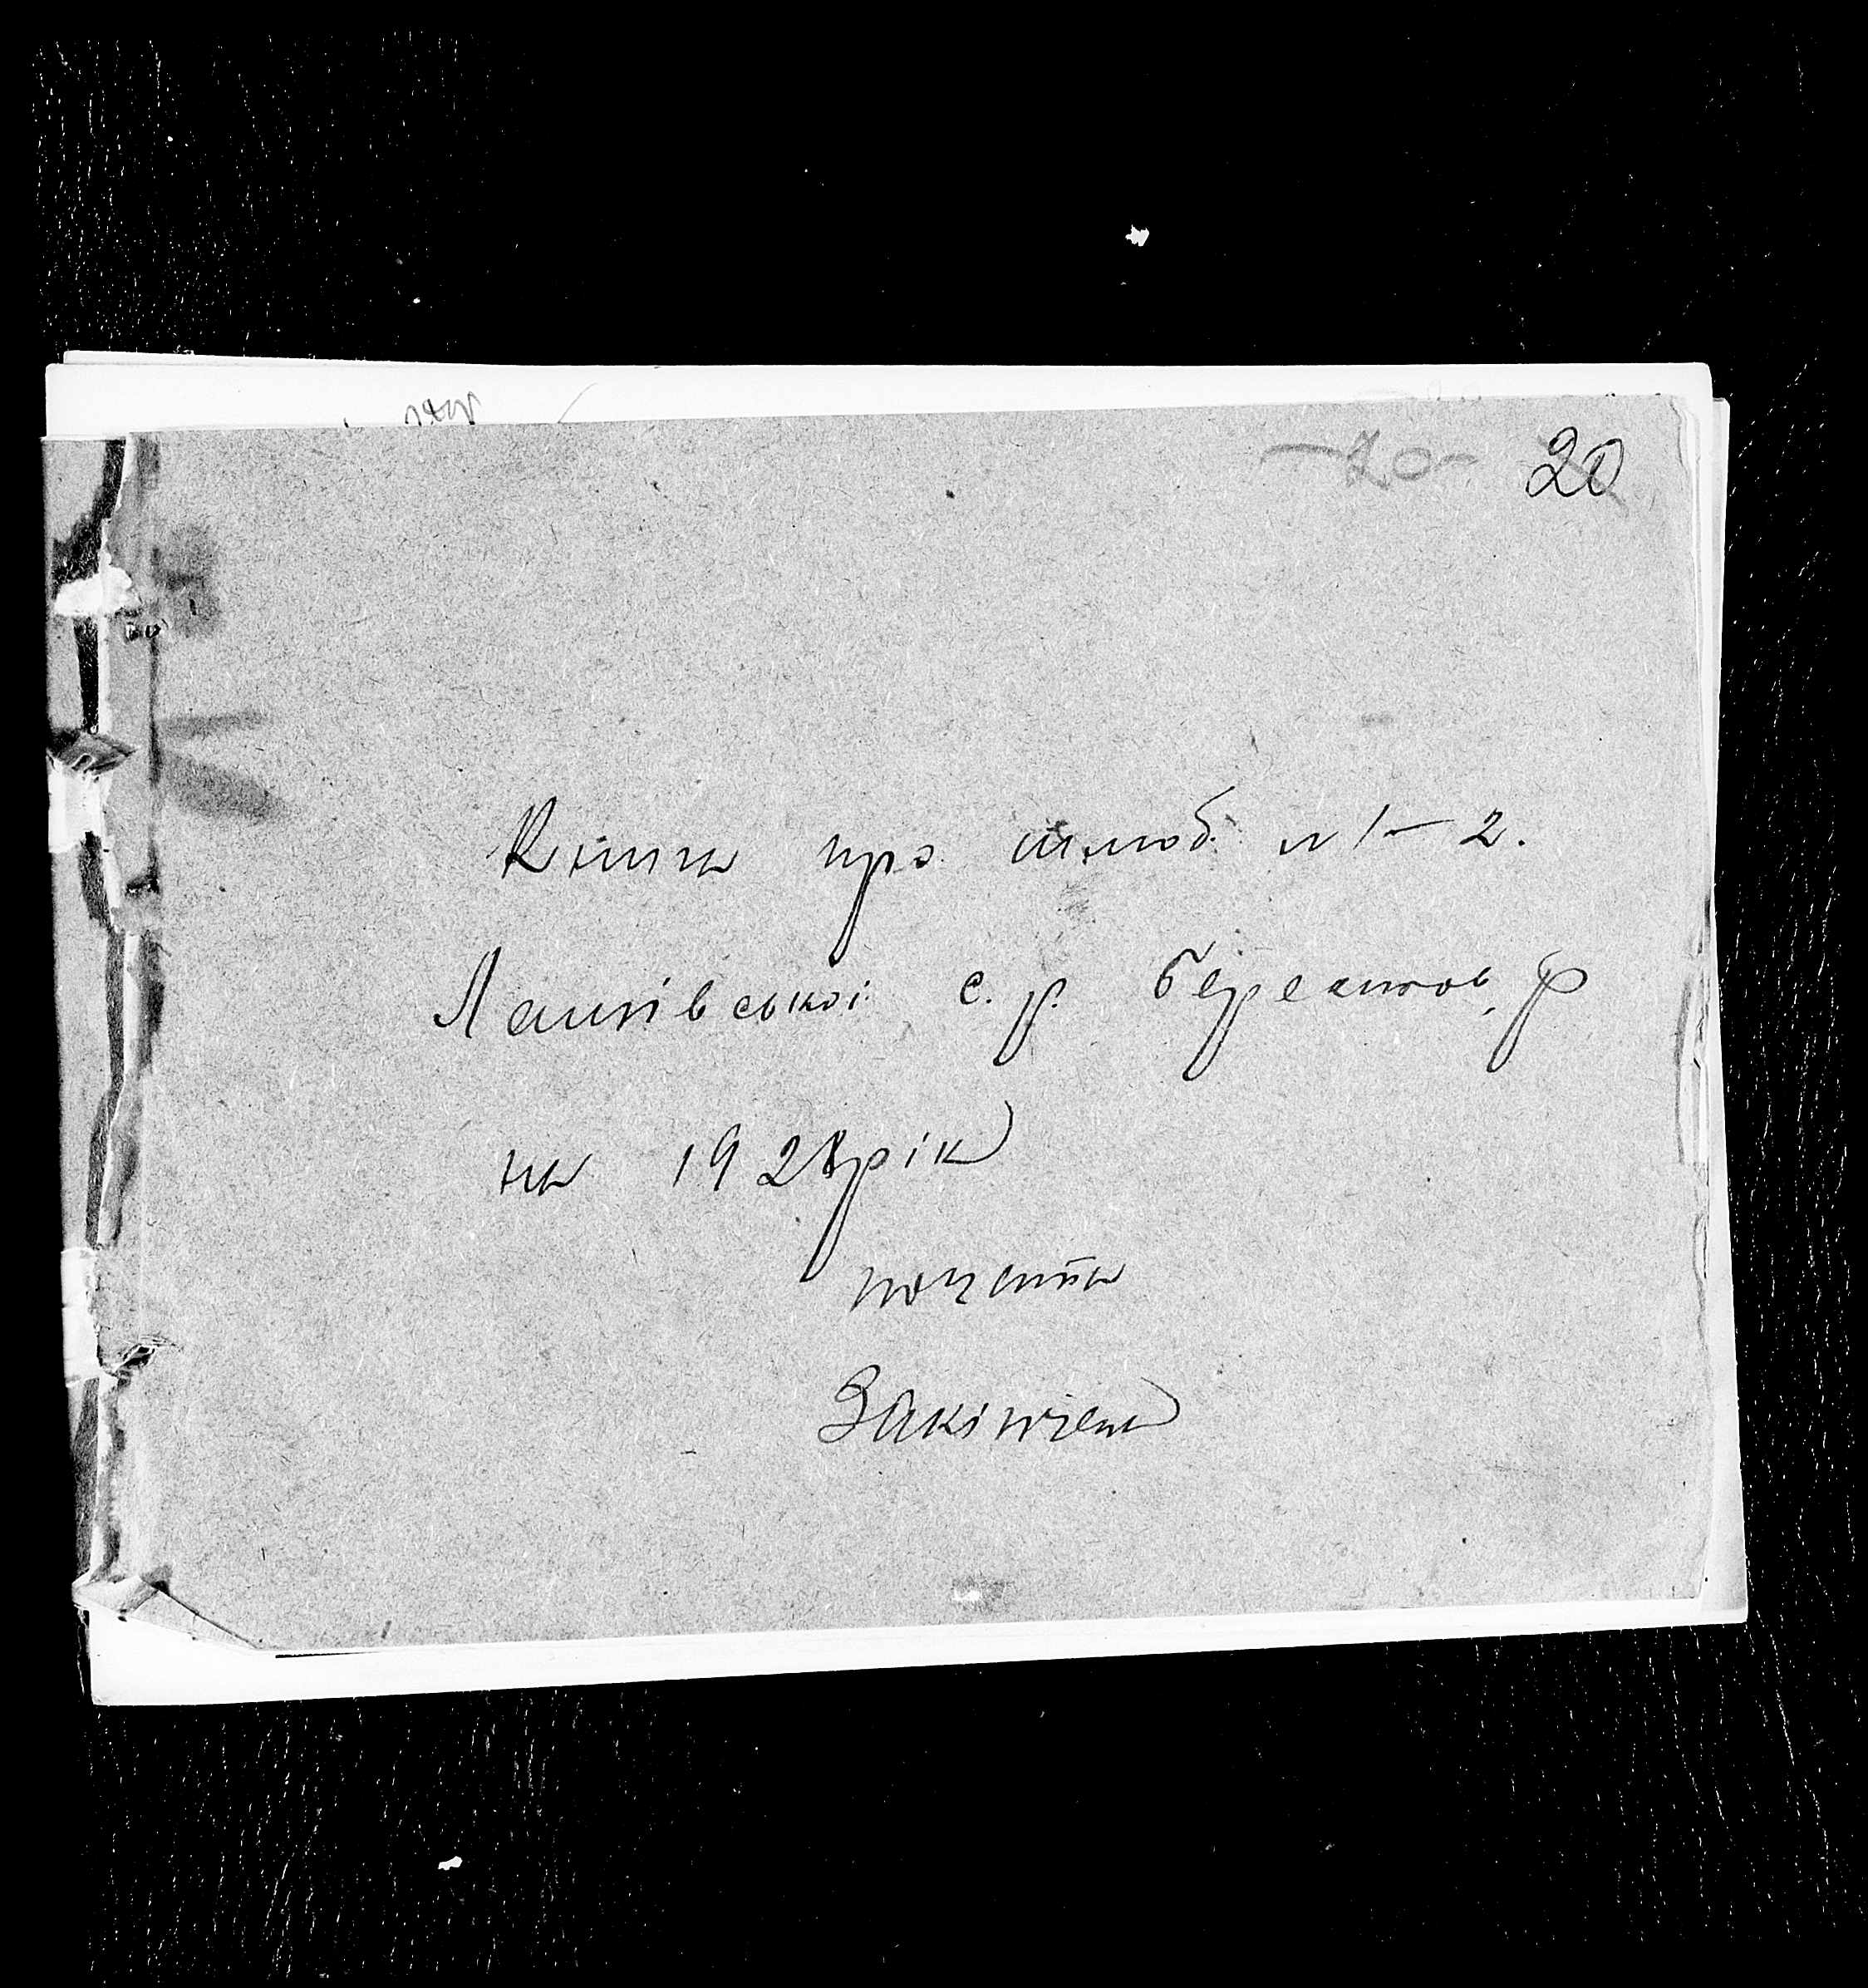 20 20
Книга про шлюб. № 1–2.
Лашівської с. р. Березнов. р
на 1928 рік
почата
Закінчен